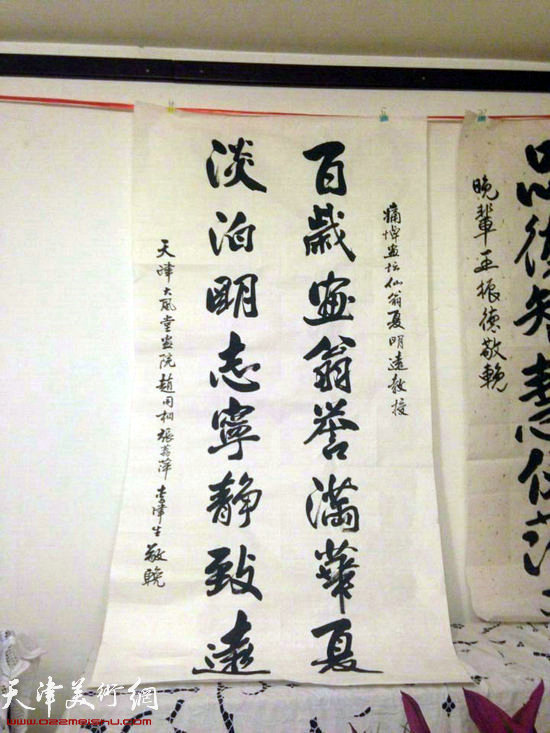 痛悼畫坛仙翁夏明遠教授
百歲畫翁誉滿華夏
淡泊明志寧靜致遠
天津大風堂畫院趙用桐張壽萍李澤生敬輓
晚輩王振德敬輓
天津美術網
www.022meishu.com